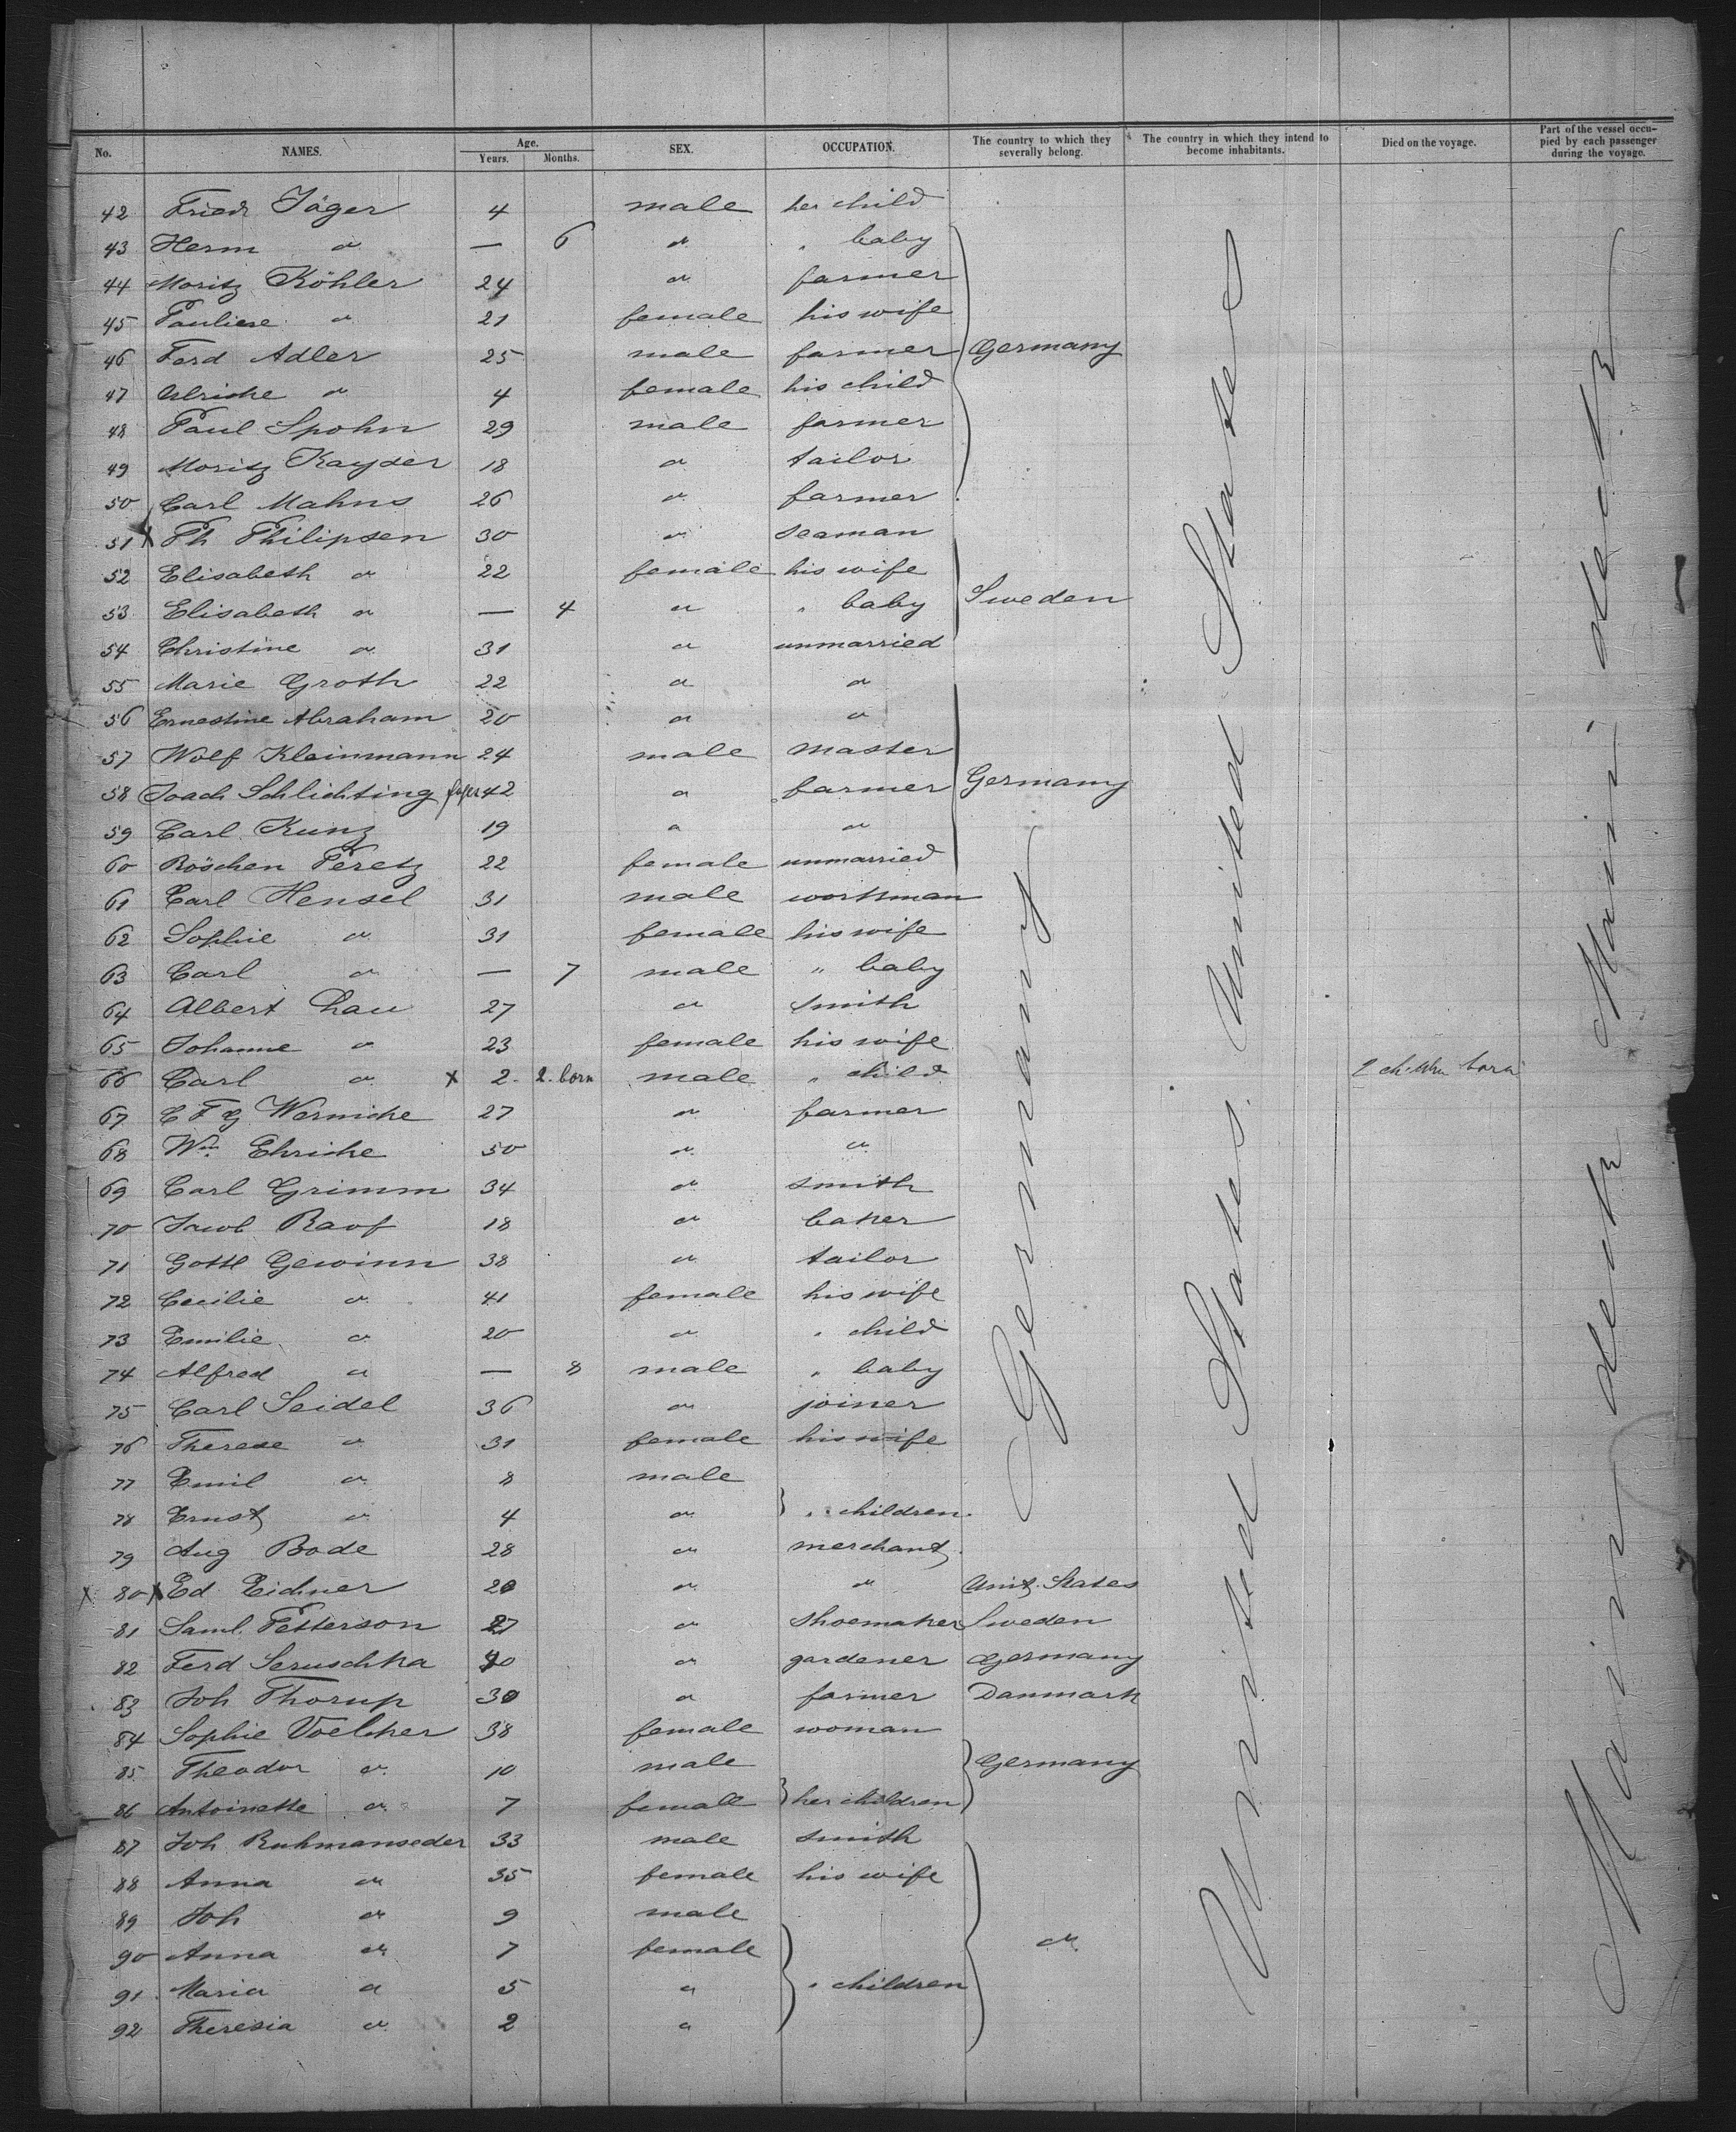 No. NAMES. Age. Years. Months. SEX. OCCUPATION. The country to which they severally belong. The country in which they intend to become inhabitants. Died on the voyage. Part of the vessel occupied by each passenger during the voyage.
42 Friedr Jäger 4 male her child
43 Herm " — 6 " " baby
44 Moritz Köhler 24 " farmer
45 Pauliene " 21 female his wife
46 Ferd Adler 25 male farmer Germany
47 Ulricke " 4 female his child
48 Paul Spohn 29 male farmer
49 Moritz Kayser 18 " tailor
50 Carl Mahns 26 " farmer
51 x Th Philipsen 30 " seaman
52 Elisabeth " 22 female his wife
53 Elisabeth " — 4 " " baby Sweden
54 Christine " 31 " unmarried
55 Marie Groth 22 " "
56 Ernestine Abraham 20 " "
57 Wolf Kleinmann 24 male master
58 Joach Schlichting 42 " farmer Germany
59 Carl Kunz 19 " "
60 Röschen Peretz 22 female unmarried
61 Carl Hensel 31 male workman
62 Sophie " 31 female his wife
63 Carl " — 7 male " baby
64 Albert Chau 27 " smith
65 Johanne " 23 female his wife
66 Carl " x 2. 2. born male " child 2 children born
67 C F G Wernicke 27 " farmer
68 Wm. Ehricke 50 " "
69 Carl Grimm 34 " smith
70 Jacob Raof 18 " baker
71 Gottl Gewinn 38 " tailor
72 Cecilie " 41 female his wife
73 Emilie " 20 " " child
74 Alfred " — 8 male " baby
75 Carl Seidel 36 " joiner
76 Therese " 31 female his wife
77 Emil " 8 male
78 Ernst " 4 " " children.
79 Aug Bode 28 " merchant
x 80 x Ed Eichner 20 " " Unit. States
81 Saml. Petterson 27 " shoemaker Sweden
82 Ferd Seruschka 40 " gardener Germany
83 Joh Thorup 30 " farmer Danmark
84 Sophie Voelcker 38 female woman
85 Theodor " 10 male Germany
86 Antoinette " 7 female her children
87 Joh Ruhmanseder 33 male smith
88 Anna " 35 female his wife
89 Joh " 9 male
90 Anna " 7 female "
91 Maria " 5 " " children
92 Theresia " 2 "
Germany
United States. United States
Main deck Main deck